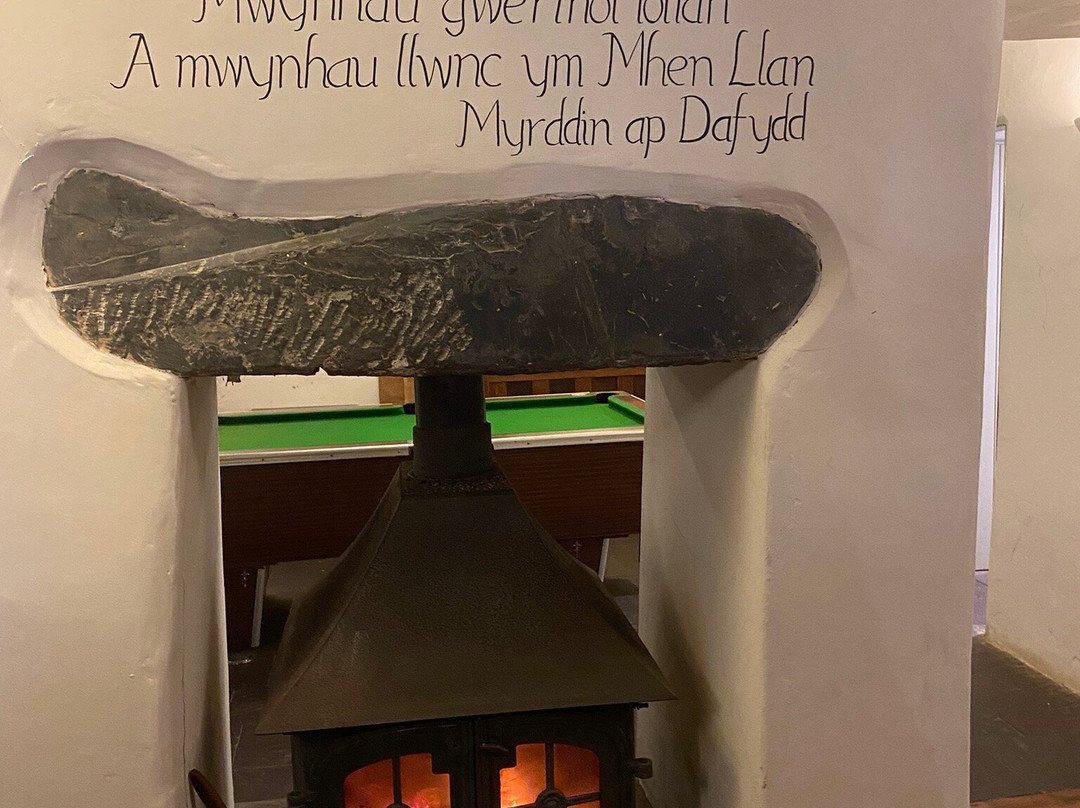 Mwynhau gwerthol lolian
A mwynhau llwnc ym Mhen Llan
Myrddin ap Dafydd